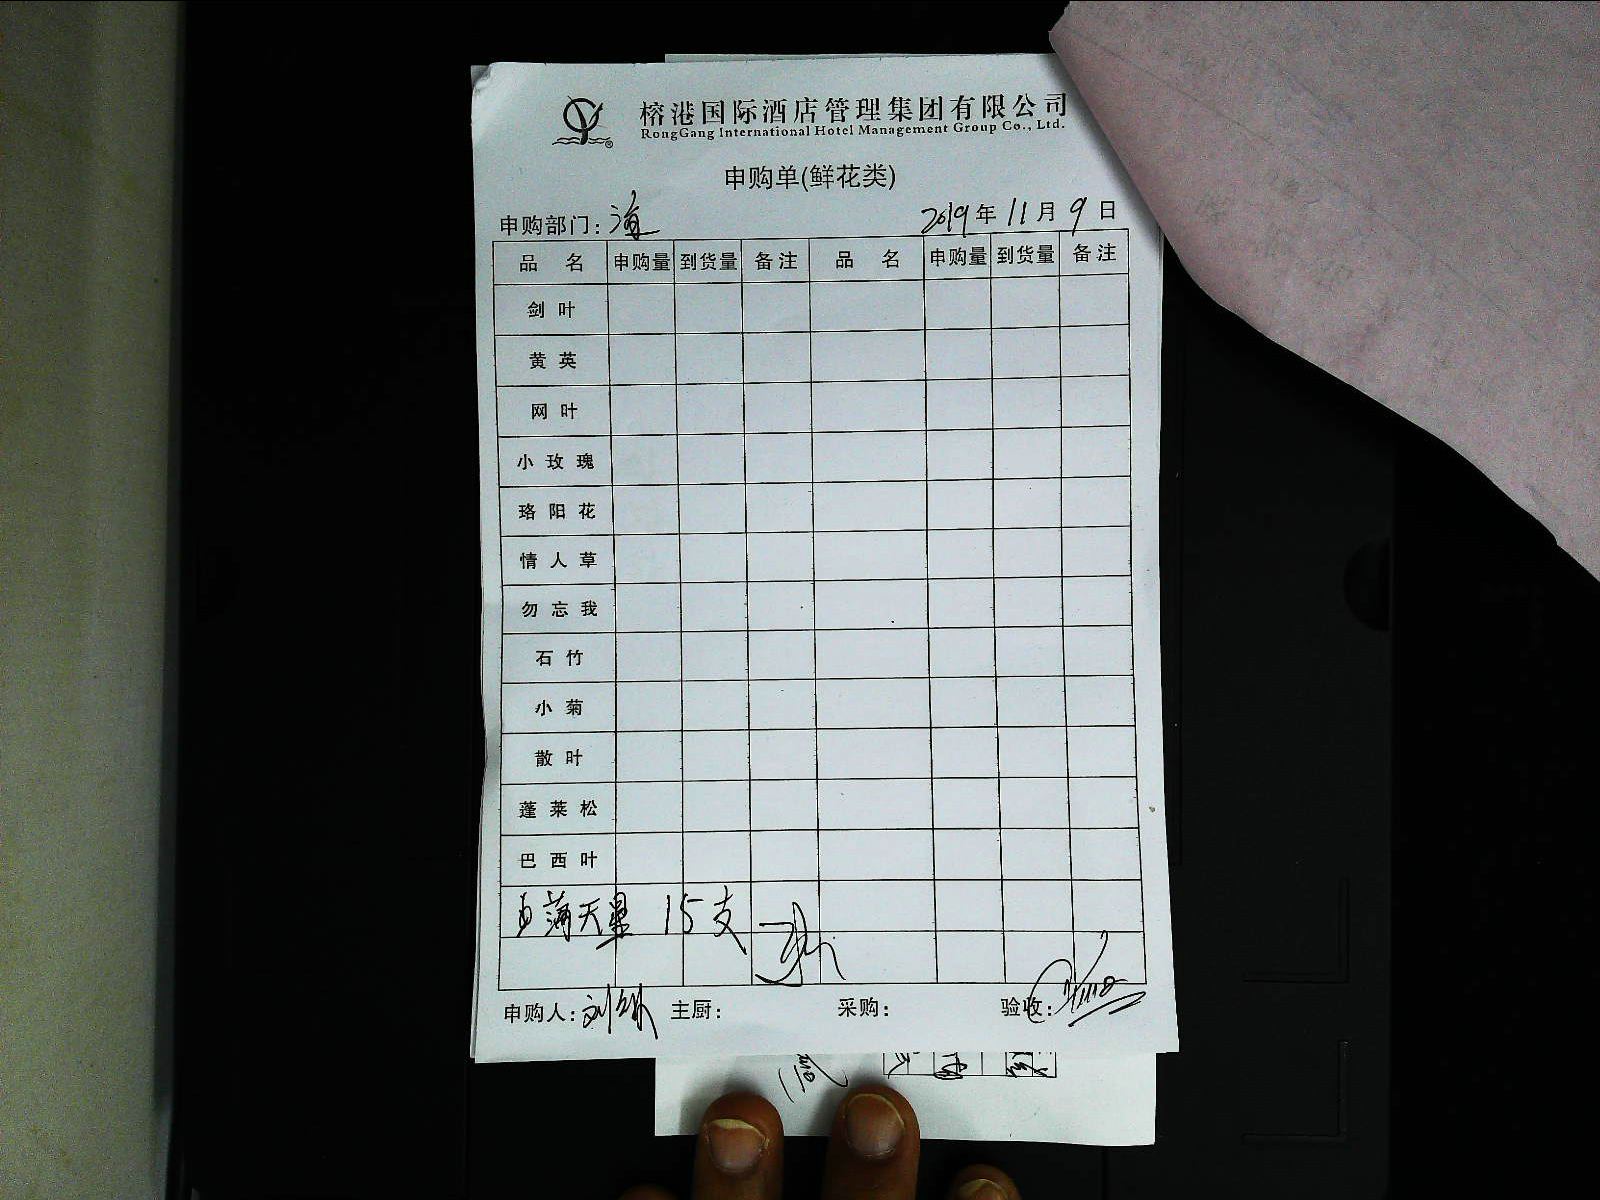 榕港国际酒店管理集团有限公司
RongGang International Hotel Management Group Co., Ltd.
申购单(鲜花类)
申购部门: 2019年11月9日
品名 申购量 到货量 备注 品名 申购量 到货量 备注
剑叶
黄英
网叶
小玫瑰
珞阳花
情人草
勿忘我
石竹
小菊
散叶
蓬莱松
巴西叶
天星 15支
申购人:刘 主厨: 采购: 验收: